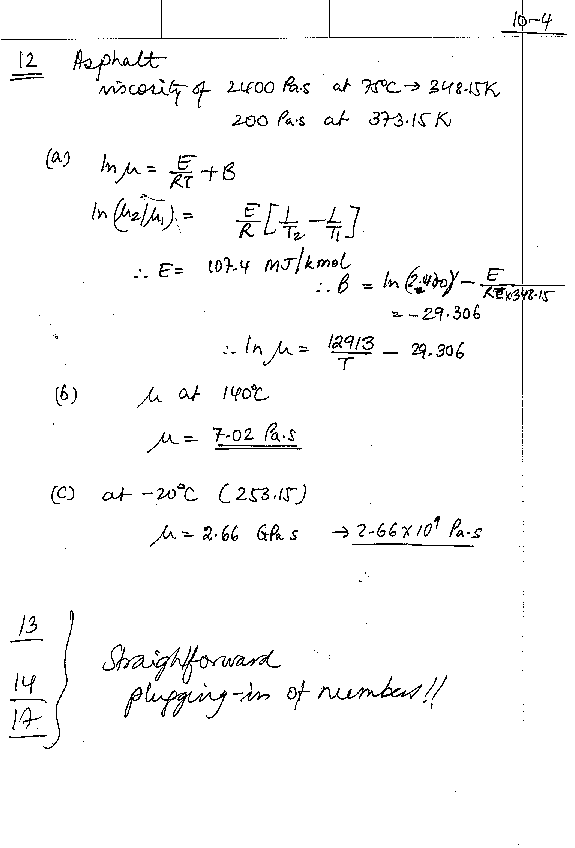 10-4
12 Asphalt
viscosity of 2400 Pa.s at 75°C → 348.15K
200 Pa.s at 373.15 K
(a) ln μ = E/RT + B
ln (μ2/μ1) = E/R [1/T2 - 1/T1]
∴ E = 107.4 MJ/kmol
∴ B = ln (2,400) - E/R×348.15
= -29.306
∴ ln μ = 12913/T - 29.306
(b) μ at 140°C
μ = 7.02 Pa.s
(C) at -20°C (253.15)
μ = 2.66 GPa s → 2.66 × 10⁹ Pa.s
13
14
17
Straightforward
plugging-in of numbers!!